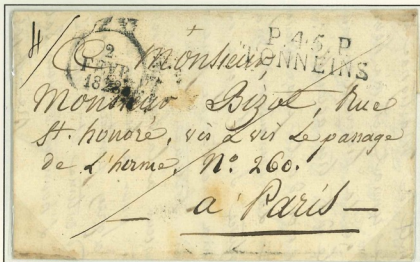 P.45.P.
TONNEINS
2
FEVR
182
Monsieur,
Monsieur Bizot, Rue
St. honoré, vis à vis Le passage
de L'herme, N° 260.
a Paris